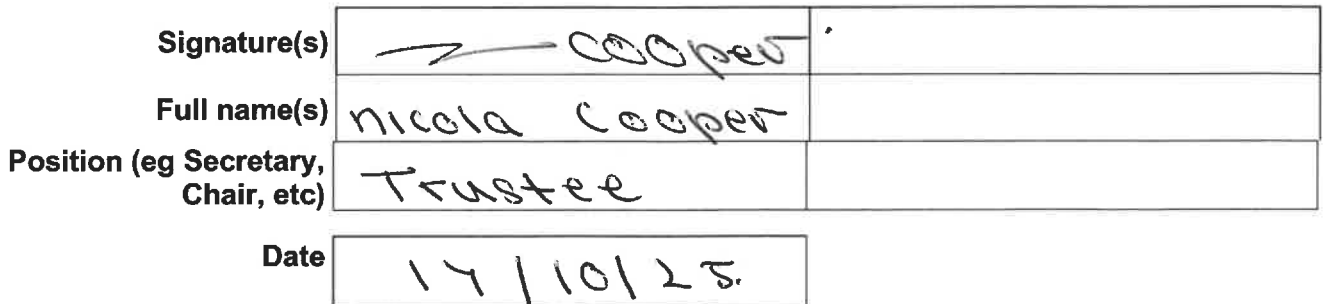 Signature(s) Cooper
Full name(s) nicola Cooper
Position (eg Secretary,
Chair, etc) Trustee
Date